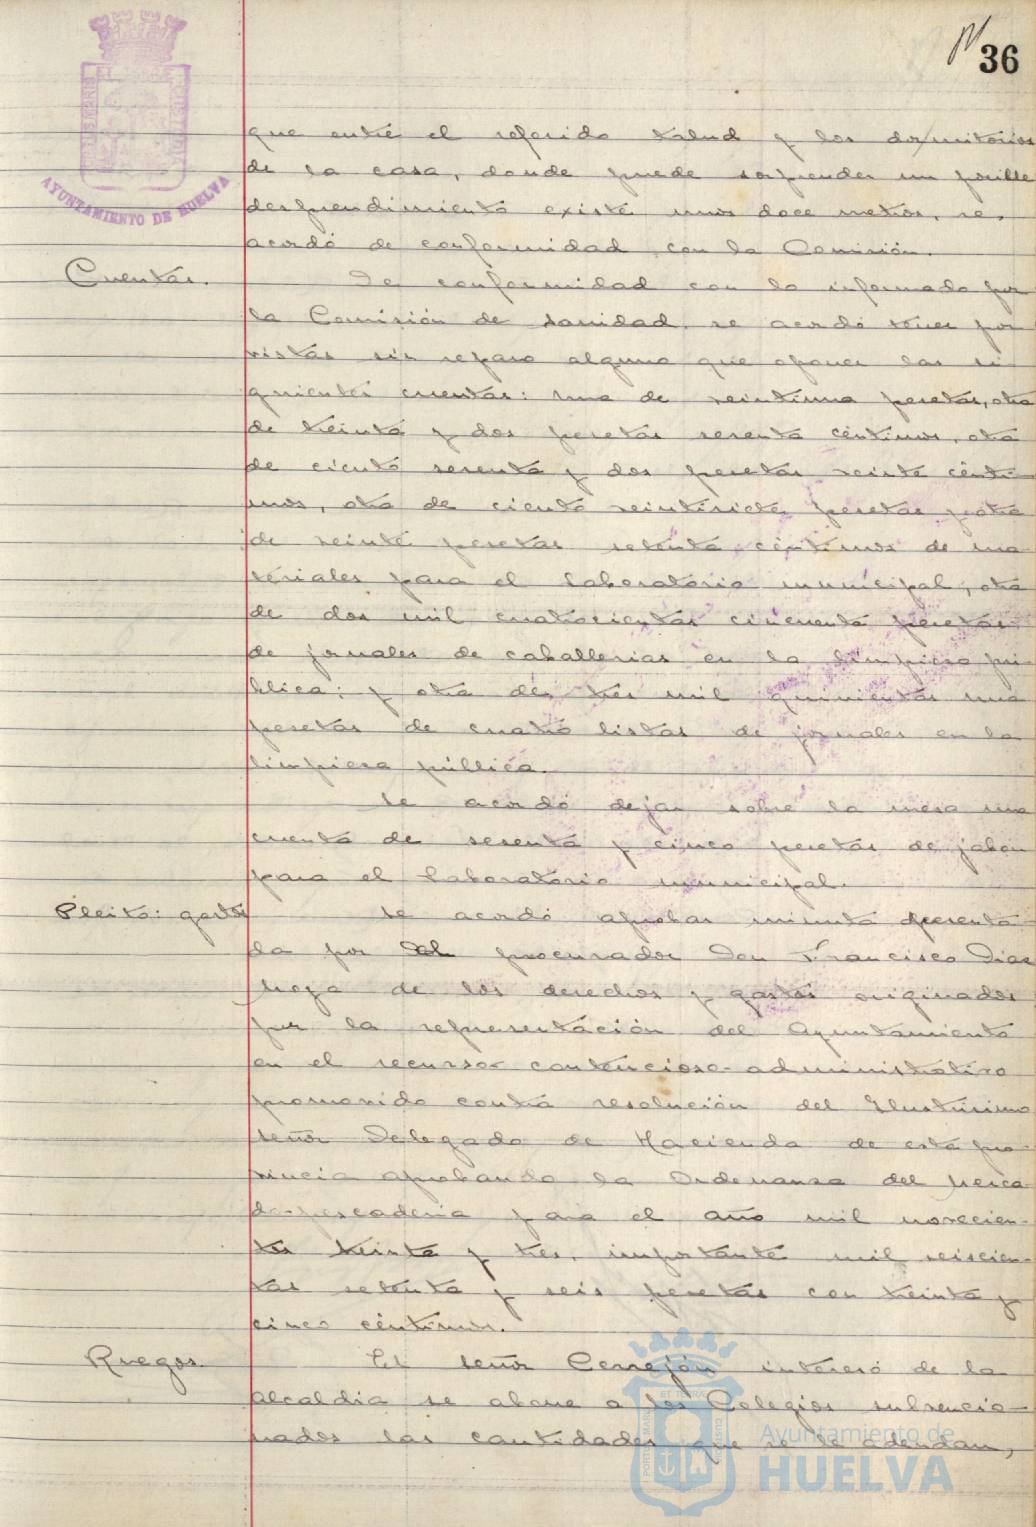 36
AYUNTAMIENTO DE HUELVA
que entre el referido talud y los dormitorios
de la casa, donde puede sorprender un posible
desprendimiento existe unos doce metros, se
acordó de conformidad con la Comisión.
Cuentas.
De conformidad con lo informado por
la Comisión de Sanidad, se acordó tener por
vistas sin reparo alguno que oponer las si
guientes cuentas: una de veintiuna pesetas, otra
de treinta y dos pesetas sesenta céntimos, otra
de ciento sesenta y dos pesetas veinte cénti
mos, otra de ciento veintisiete pesetas y otra
de veinte pesetas setenta céntimos de ma
teriales para el laboratorio municipal; otra
de dos mil cuatrocientas cincuenta pesetas
de jornales de caballerias en la limpieza pú-
blica; y otra de tres mil quinientas una
pesetas de cuatro listas de jornales en la
limpieza pública.
Se acordó dejar sobre la mesa una
cuenta de sesenta y cinco pesetas de jabon
para el laboratorio municipal.
Pleito: gastos
Se acordó aprobar minuta presenta
da por el procurador Don Francisco Dias
de los derechos y gastos originados
por la representación del Ayuntamiento
en el recurso contencioso-administrativo
promovido contra resolución del Ilustrísimo
señor Delegado de Hacienda de esta pro-
vincia aprobando la Ordenanza del pesca
do-pescaderia para el año mil novecien-
tos treinta y tres, importante mil seiscien-
tas setenta y seis pesetas con treinta y
cinco céntimos.
Ruegos.
El señor Cerrejón interesó de la
Alcaldía se abone a los Colegios subvencio-
nados las cantidades que se le adeudan,
Ayuntamiento de
HUELVA